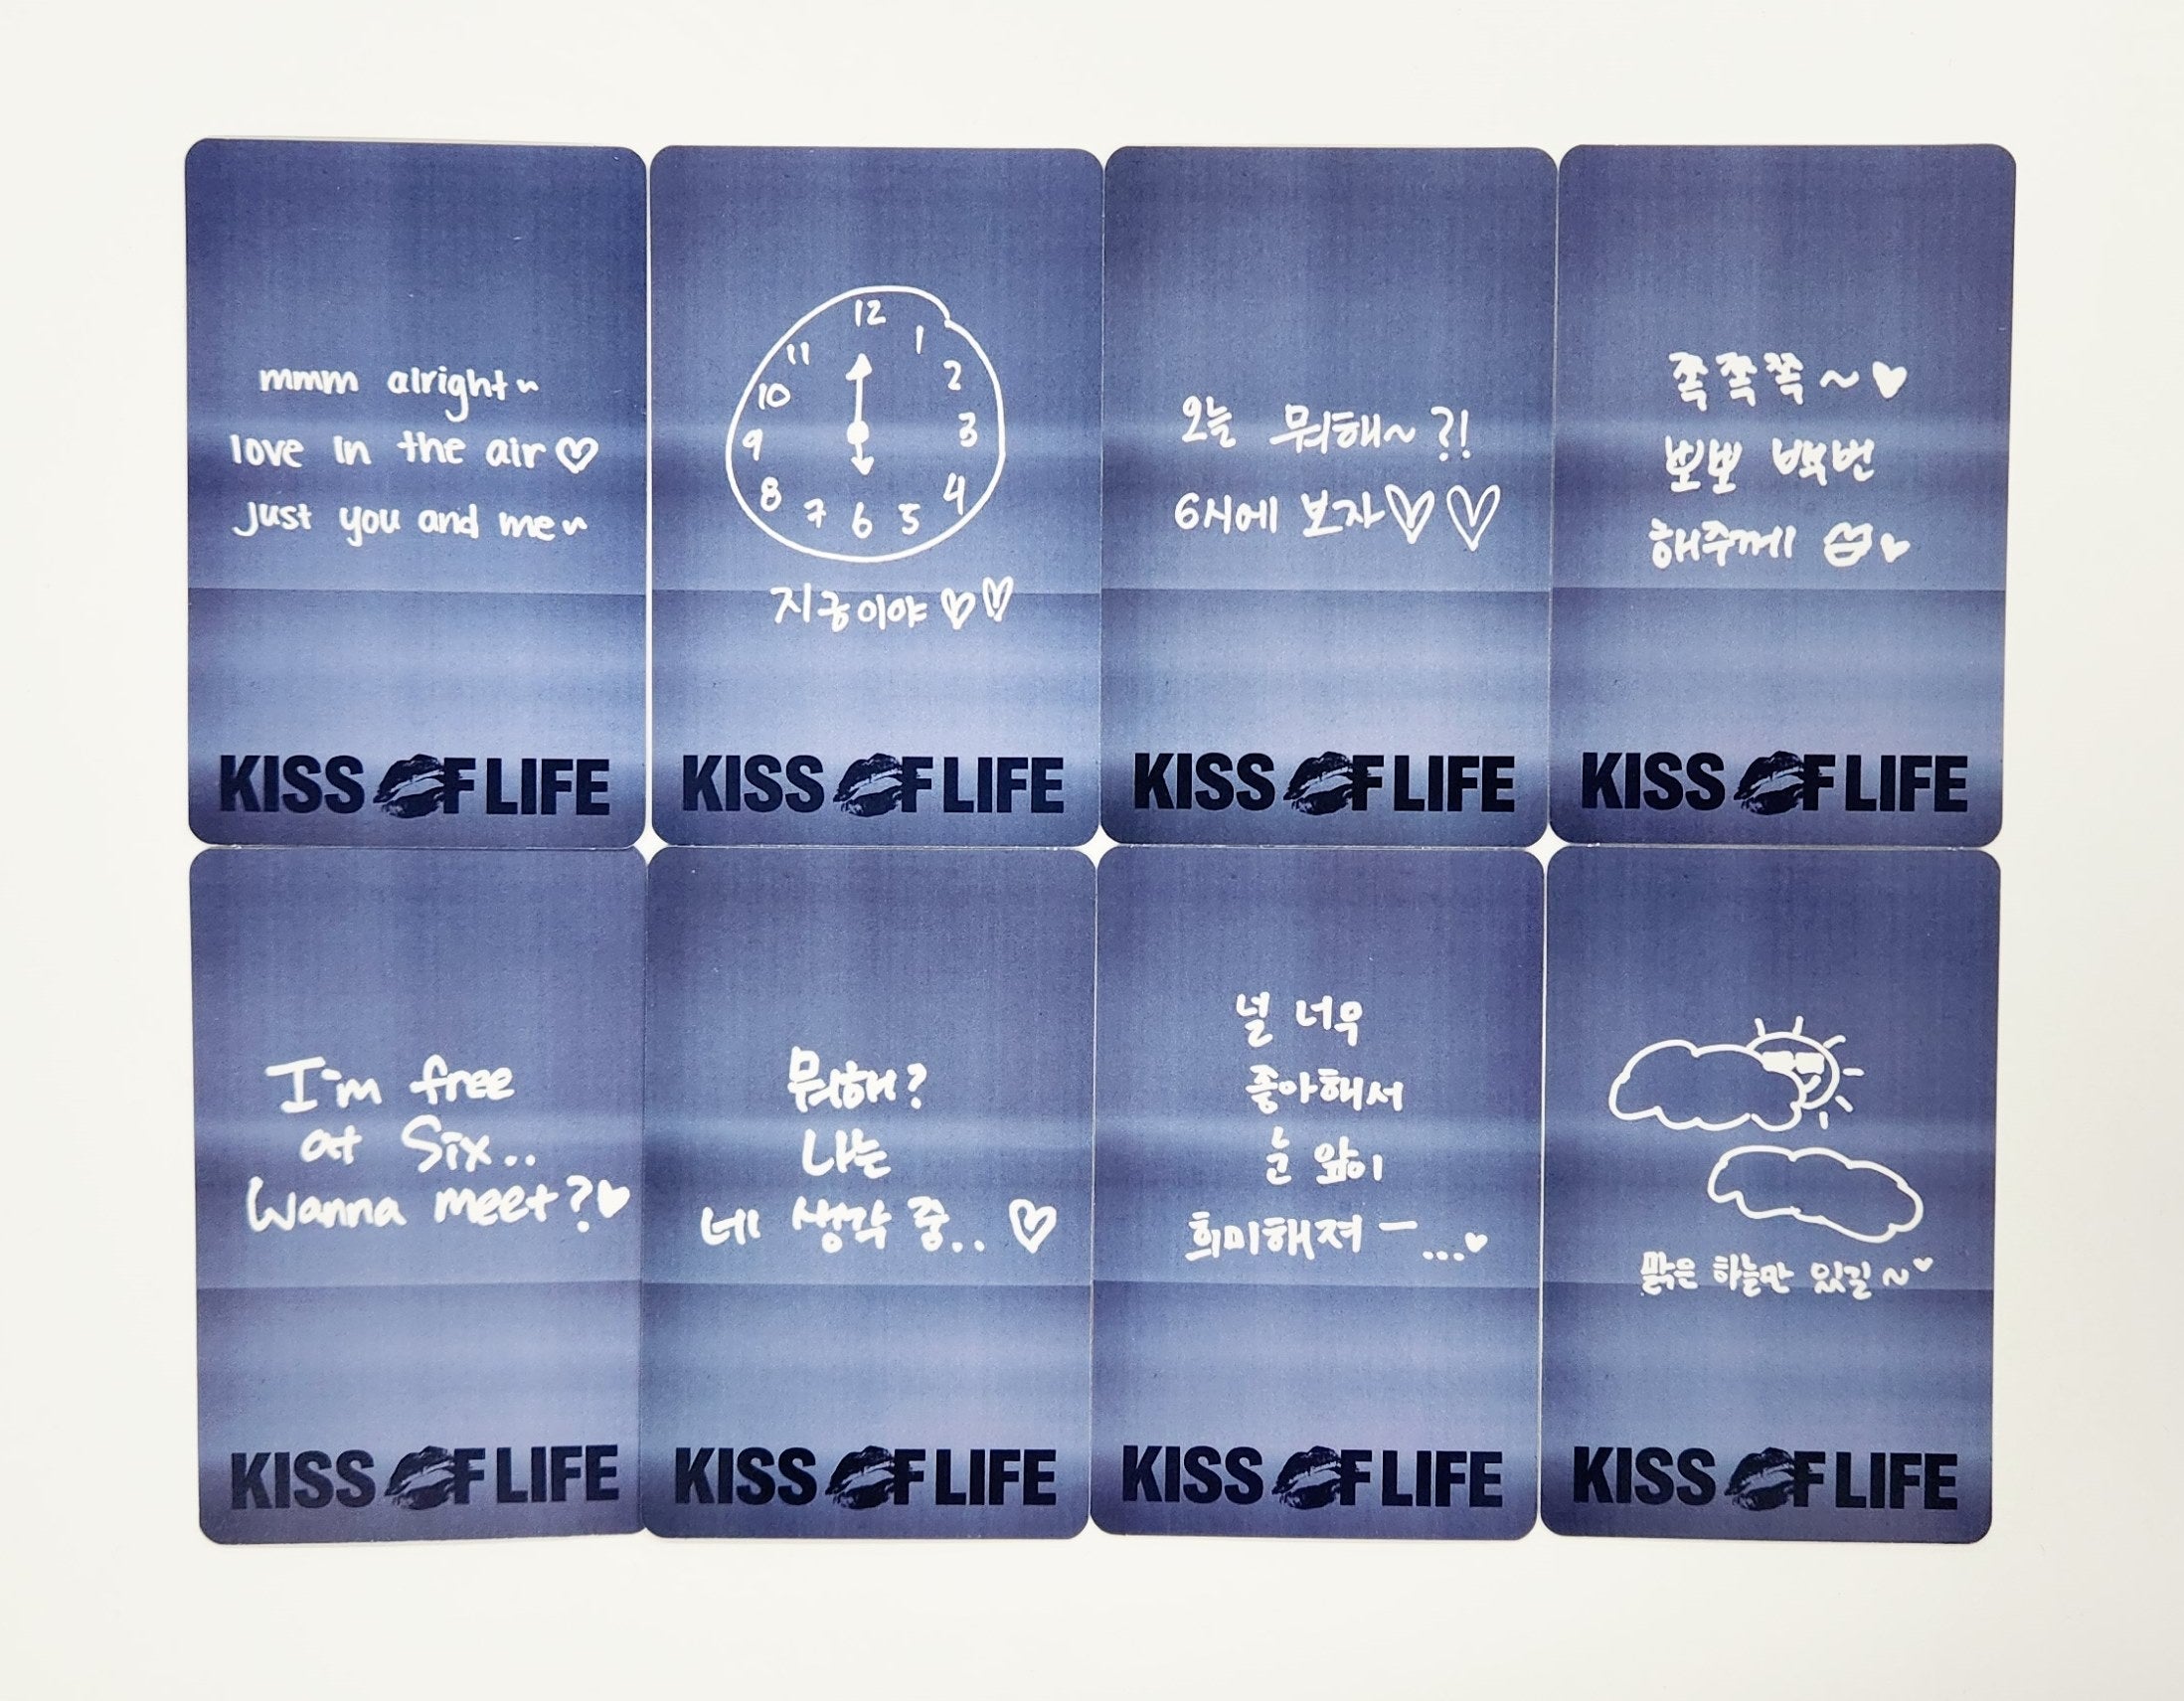 mmm alright~
love in the air♡
Just you and me~
KISS OF LIFE
12
1
2
3
4
5
6
7
8
9
10
11
지금이야♡♡
KISS OF LIFE
오늘 뭐해~?!
6시에 보자♡♡
KISS OF LIFE
쪽쪽쪽~♥
뽀뽀 백번
해주께 ♥
KISS OF LIFE
I'm free
at Six..
Wanna meet?♥
KISS OF LIFE
뭐해?
나는
네 생각 중.. ♡
KISS OF LIFE
널 너무
좋아해서
눈 앞이
희미해져ㅡ...♥
KISS OF LIFE
맑은 하늘만 있길~♥
KISS OF LIFE